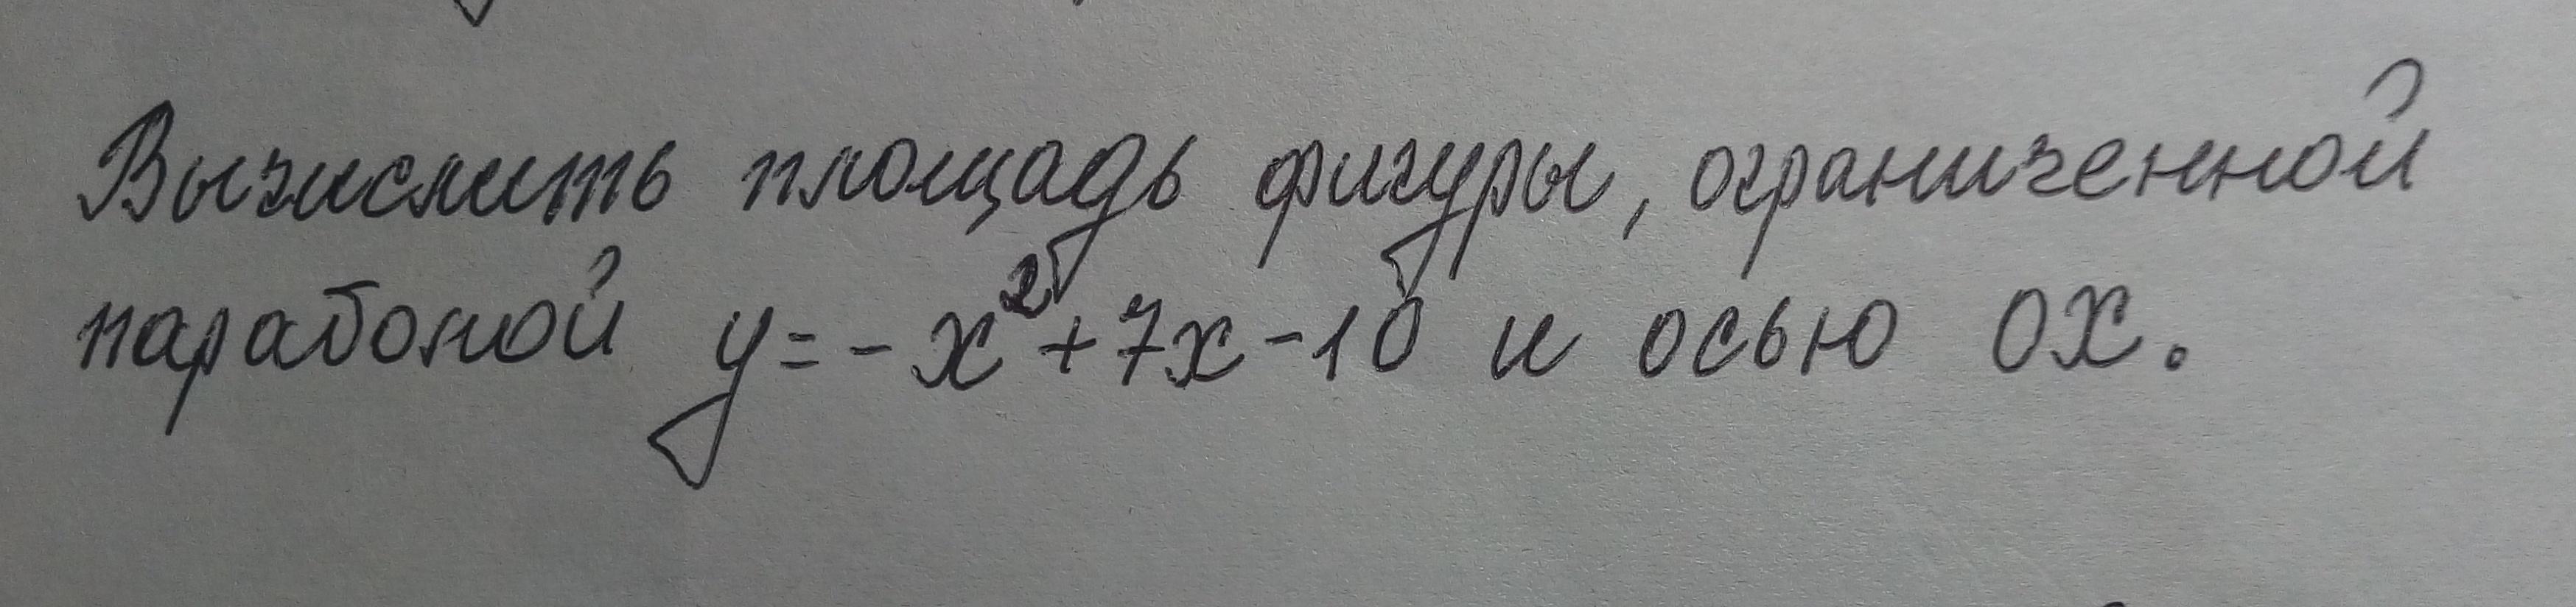 Вычислить площадь фигуры, ограниченной
параболой y = -x² + 7x - 10 и осью ОХ.